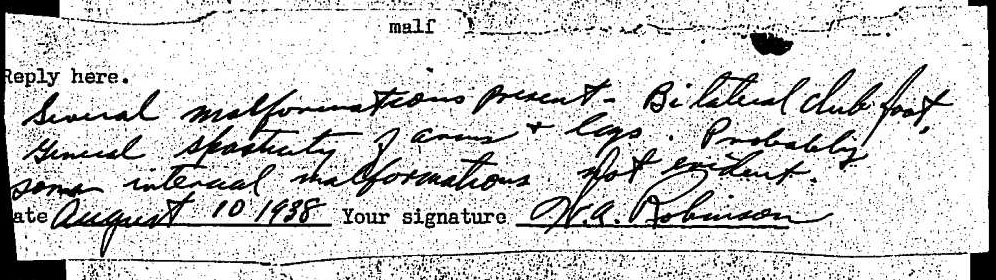 malf
Reply here.
Several malformations present - Bilateral club foot,
General spasticity of arms + legs. Probably
some internal malformations not evident.
ate August 10 1938 Your signature W.A. Robinson